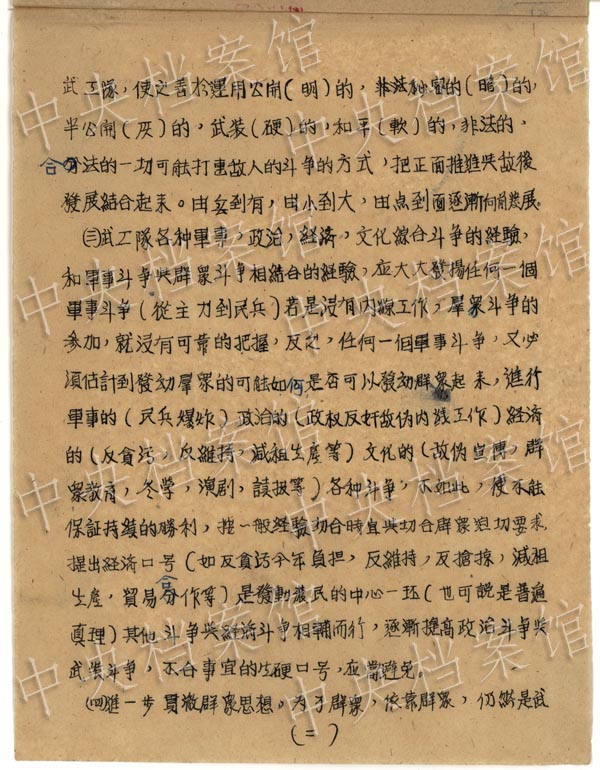 武工隊，使之善於運用公開(明)的，非法秘密的(暗)的，
半公開(灰)的，武装(硬)的，和平(軟)的，非法的，
合法的一切可能打击敌人的斗争的方式，把正面推進与敌後
發展結合起来。由無到有，由小到大，由点到面逐漸向前發展。
(三)武工隊各种軍事，政治，経済，文化綜合斗争的経驗，
和軍事斗争与群眾斗争相結合的経驗，应大大發揚任何一個
軍事斗争(從主力到民兵)若是没有内線工作，羣衆斗争的
参加，就没有可靠的把握，反之，任何一個軍事斗争，又必
須估計到發动羣衆的可能如何是否可以發动群衆起来，進行
軍事的(民兵爆炸)政治的(政权反奸敌伪内线工作)経済
的(反貪污，反維持，减租生產等)文化的(敌伪宣傳，群
衆教育，冬學，演剧，談报等)各种斗争，不如此，便不能
保証持续的勝利，按一般経驗切合時宜与切合群衆迫切要求，
提出経済口号(如反貪污合理負担，反維持，反搶掠，减租
生産，貿易合作等)是發動農民的中心一环(也可説是普遍
真理)其他斗争与経済斗争相輔而行，逐漸提高政治斗争与
武装斗争，不合事宜的生硬口号，应當避免。
(四)進一步貫澈群衆思想。为了群衆，依靠群衆，仍然是武
(二)
中央档案馆